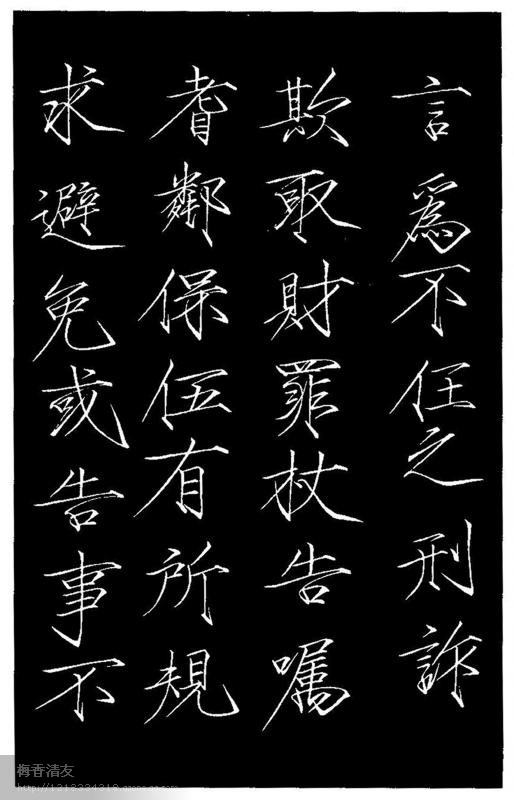 言爲不任之刑詐
欺取財罪杖告嘱
耆鄰保伍有所規
求避免或告事不
梅香清友